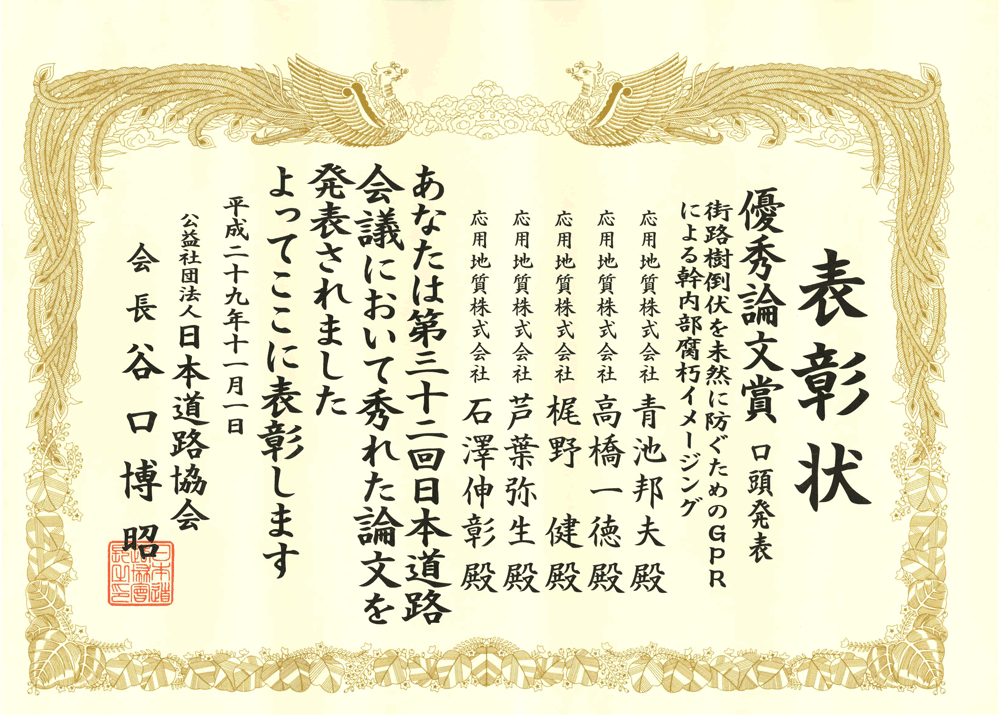 表彰状
優秀論文賞 口頭発表
街路樹倒伏を未然に防ぐためのGPR
による幹内部腐朽イメージング
応用地質株式会社 青池邦夫殿
応用地質株式会社 高橋一徳殿
応用地質株式会社 梶野 健殿
応用地質株式会社 芦葉弥生殿
応用地質株式会社 石澤伸彰殿
あなたは第三十二回日本道路
会議において秀れた論文を
発表されました
よってここに表彰します
平成二十九年十一月一日
公益社団法人 日本道路協会
会長 谷口博昭